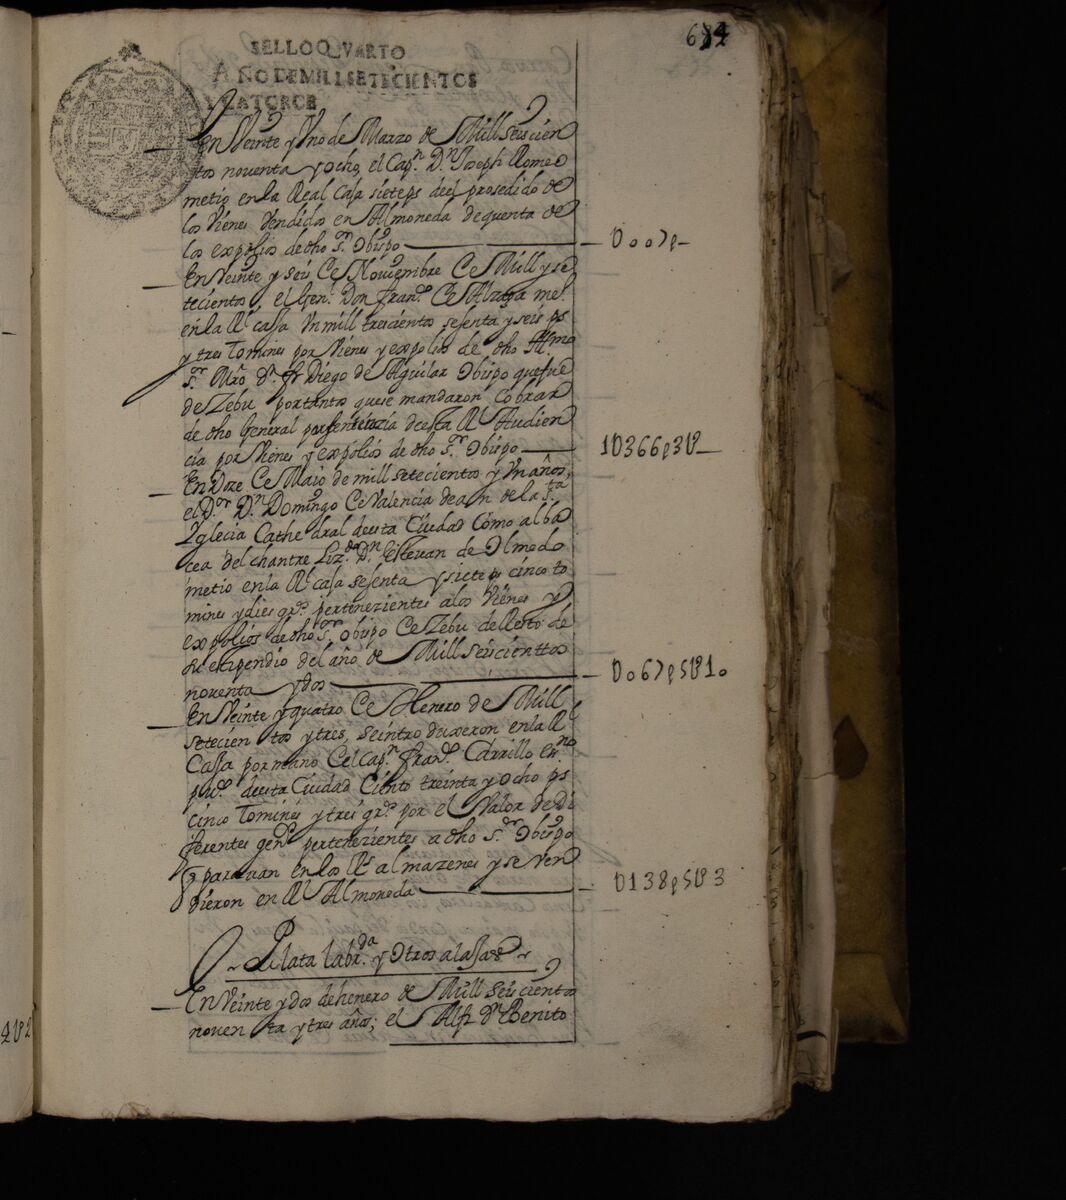 684
SELLO QVARTO
AÑO DE MILL SETECIENTOS
Y CATORCE
En Veinte y Vno de Marzo de Mill seis cien
tos noventa y ocho, el Capn. Dn. Joseph Romeo
metio en la Real Casa siete ps del prosedido de
los Vienes Vendidos en Almoneda de quenta de
los expolios de dho Sr. Obispo
U007p
En Veinte y seis Ce Noviembre Ce Mill y se
tecientos, el Genl. Don Franco. Ce Atega me.
en la Rl cassa Vn mill trescientos sesenta y seis ps
y tres Tomines por Vienes y expolios de dho Illmo
Sr. Mro Dn. fr Diego de Aguilar Obispo que fue
de Zebu por tantos que se mandaron Cobrar
de dho General por sentenzia de esta Rl Audien
cia por Vienes y expolios de dho Sr. Obispo
1U366p3U
En Doze Ce Maio de mill setecientos y Vn años,
el Dor. Dn. Domingo Ce Valencia dean de la Sta.
Yglecia Cathedral de esta Ciudad Como alba
cea del chantre Lizdo. Dn. Estevan de Olmedo
metio en la Rl casa sesenta y siete ps cinco to
mines y dies grs. pertenezientes a los Vienes y
expolios de dho Sr. obispo Ce Zebu de Resto de
su estipendio del año de Mill seiscienttos
noventa y dos
U067p5U10
En Veinte y quatro Ce Henero de Mill
setecientos y tres, se introduxeron en la Rl
Cassa por mano Cel Capn. Franco. Carrillo esno.
puco. de esta Ciudad Ciento treinta y ocho ps
cinco Tomines y tres grs. por el Valor de di
ferentes gens. pertenezientes a dho Sr. Obispo
q paravan en los Rs almazenes y se ven
dieron en Rl Almoneda
U138p5U3
Plata labrda. y Otras alajas
En Veinte y dos de henero de Mill seiscientos
noventa y tres años; el Alfz Dn Benito